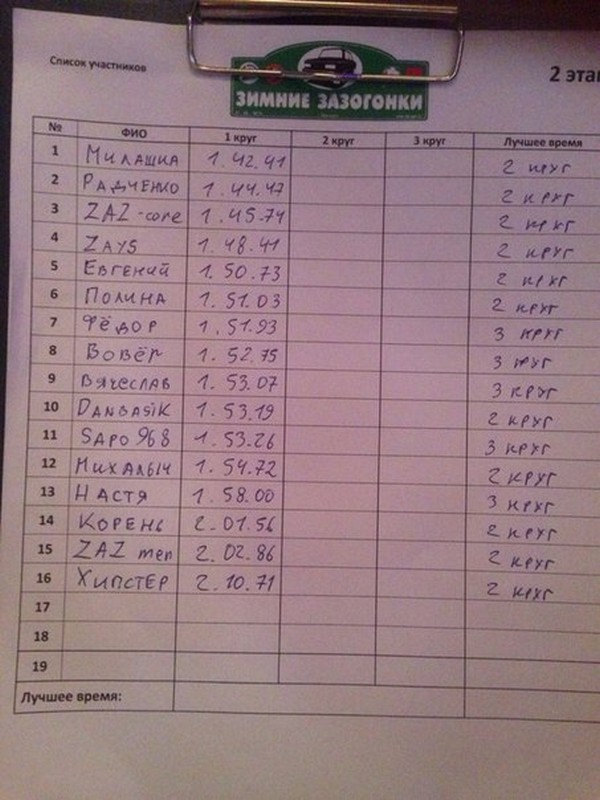 Список участников
2 этап
ЗИМНИЕ ЗАЗОГОНКИ
№ ФИО 1 круг 2 круг 3 круг Лучшее время
1 МИЛАШКА 1.42.41 2 круг
2 РАДЧЕНКО 1.44.47 2 круг
3 ZAZ-core 1.45.74 2 круг
4 ZAYS 1.48.41 2 круг
5 ЕВГЕНИЙ 1.50.73 2 круг
6 ПОЛИНА 1.51.03 2 круг
7 ФЁДОР 1.51.93 3 круг
8 ВОВЁГ 1.52.75 3 круг
9 ВЯЧЕСЛАВ 1.53.07 3 круг
10 DANBASIK 1.53.19 2 круг
11 SAPO 968 1.53.26 3 круг
12 МИХАЛЫЧ 1.54.72 2 круг
13 НАСТЯ 1.58.00 3 круг
14 КОРЕНЬ 2.01.56 2 круг
15 ZAZ men 2.02.86 2 круг
16 ХИПСТЕР 2.10.71 2 круг
17
18
19
Лучшее время: